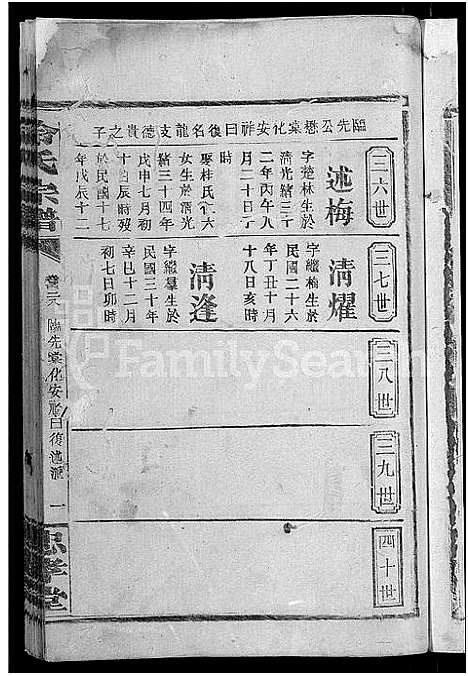 臨先公懋棠化安祥曰復名龍支德貴之子
三六世
述梅
字楚林生於
清光緒三十
二年丙午八
月二十日子
時
娶桂氏仁六
女生於清光
緒三十四年
戊申七月初
十日辰時歿
於民國十七
年戊辰十二
三七世
清燿
字繼楠生於
民國二十六
年丁丑十月
十八日亥時
清逢
字繼羣生於
民國三十年
辛巳十二月
初七日卯時
三八世
三九世
四十世
氏宗譜
臨先棠化安祥曰復
一
忠孝堂
FamilySearch